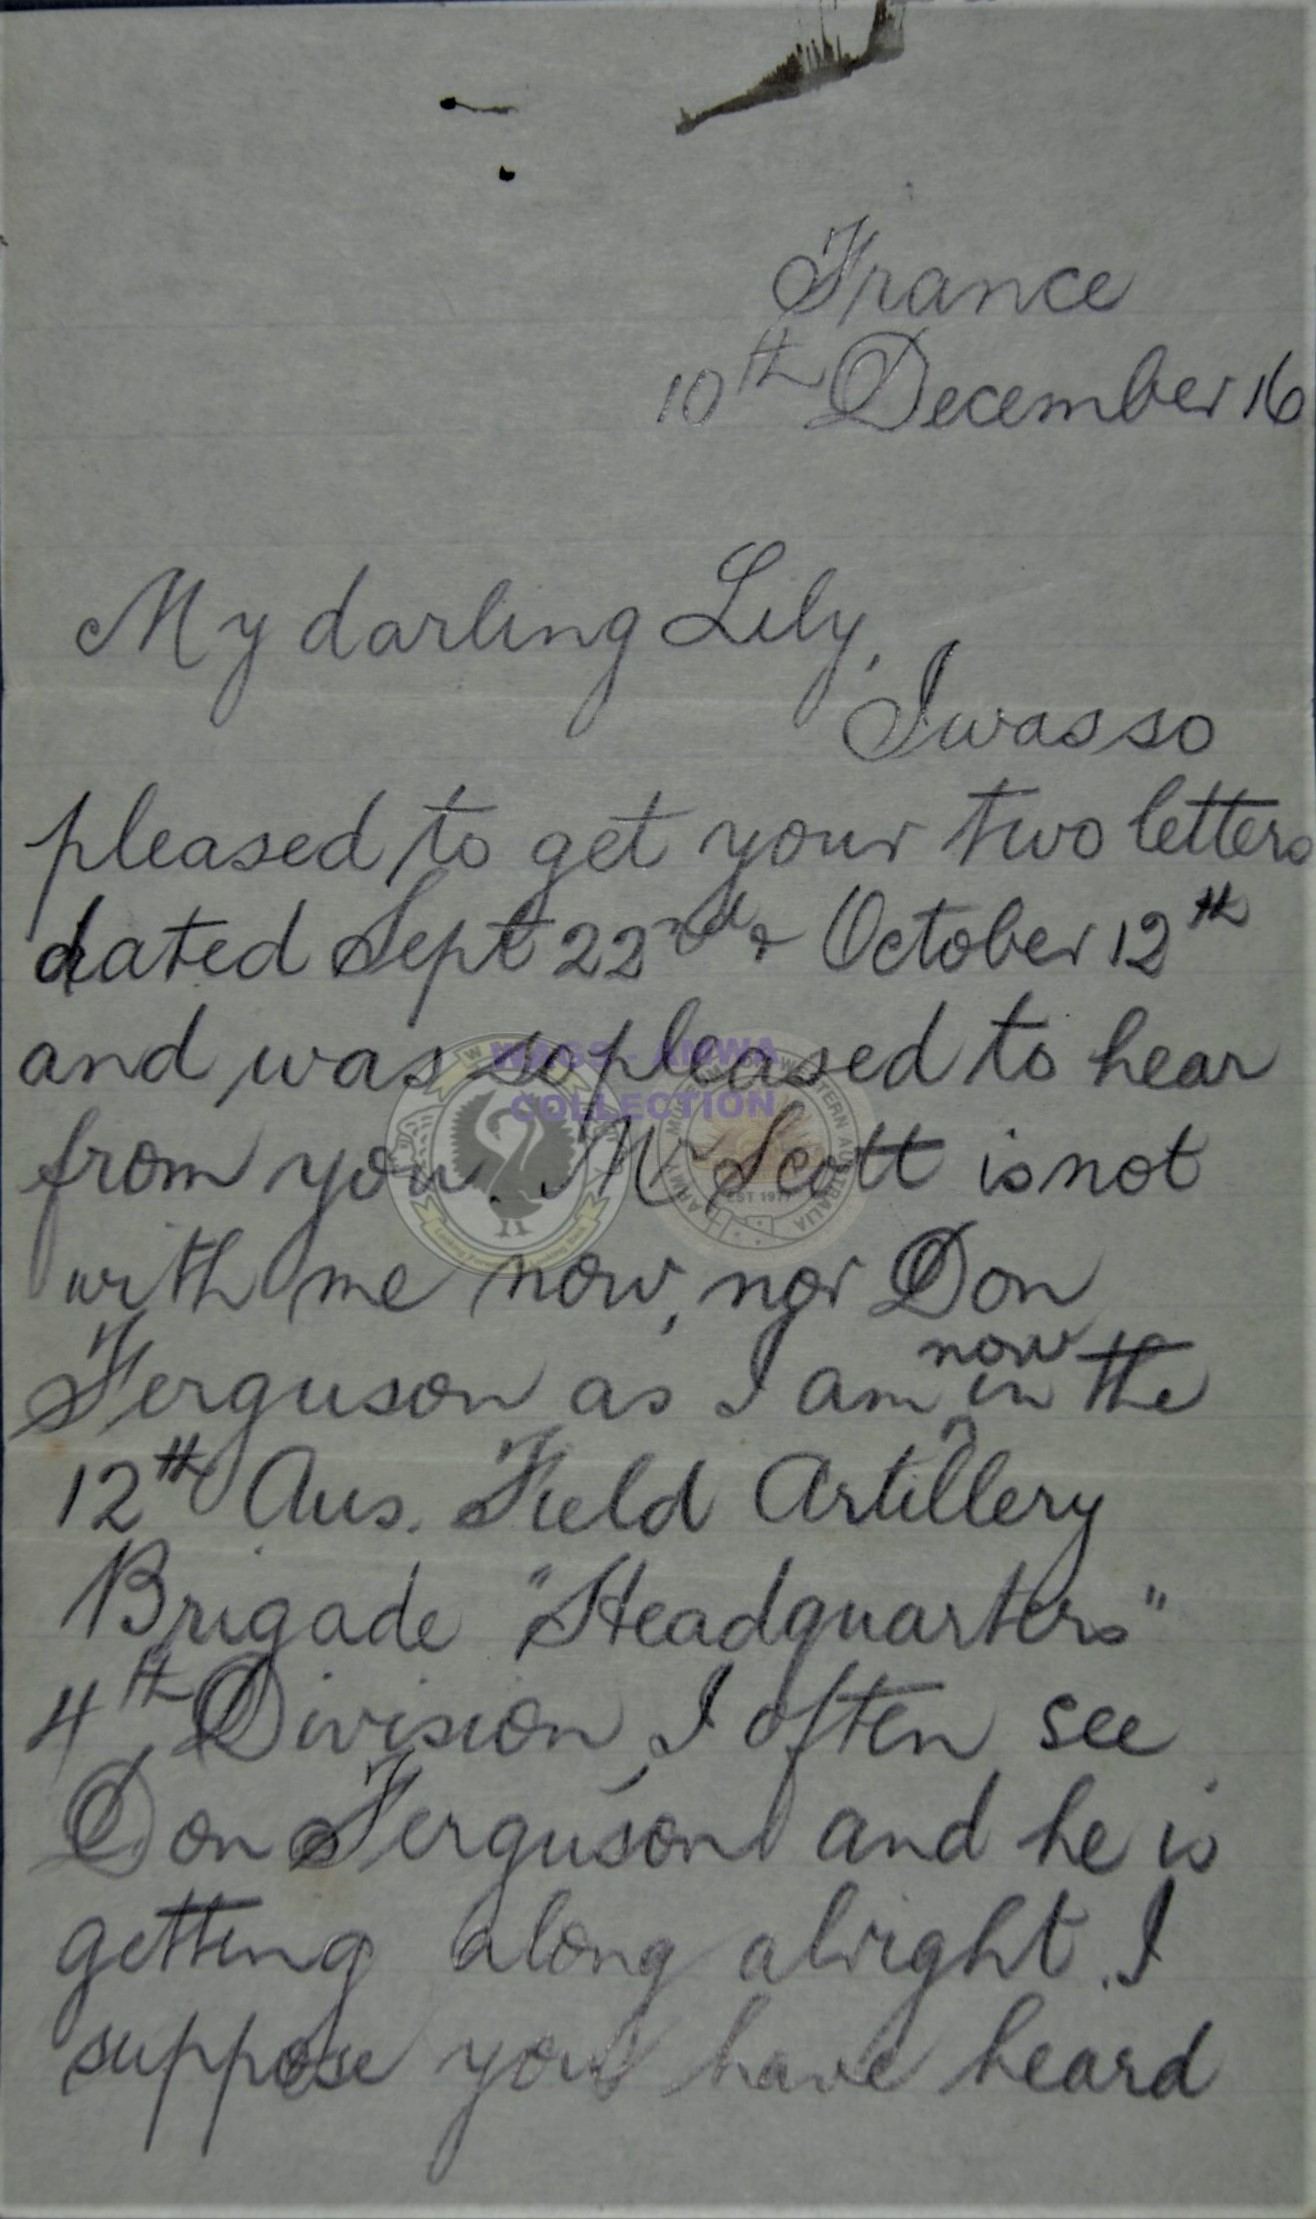 France
10th December 16
My darling Lily,
I was so
pleased to get your two letters
dated Sept 22nd & October 12th
and was so pleased to hear
from you. Mr Scott is not
with me now, nor Don
Ferguson as I am now in the
12th Aus. Field Artillery
Brigade "Headquarters"
4th Division, I often see
Don Ferguson and he is
getting along alright. I
suppose you have heard
WAGS - AMWA
COLLECTION
ARMY MUSEUM WESTERN AUSTRALIA
EST 1977